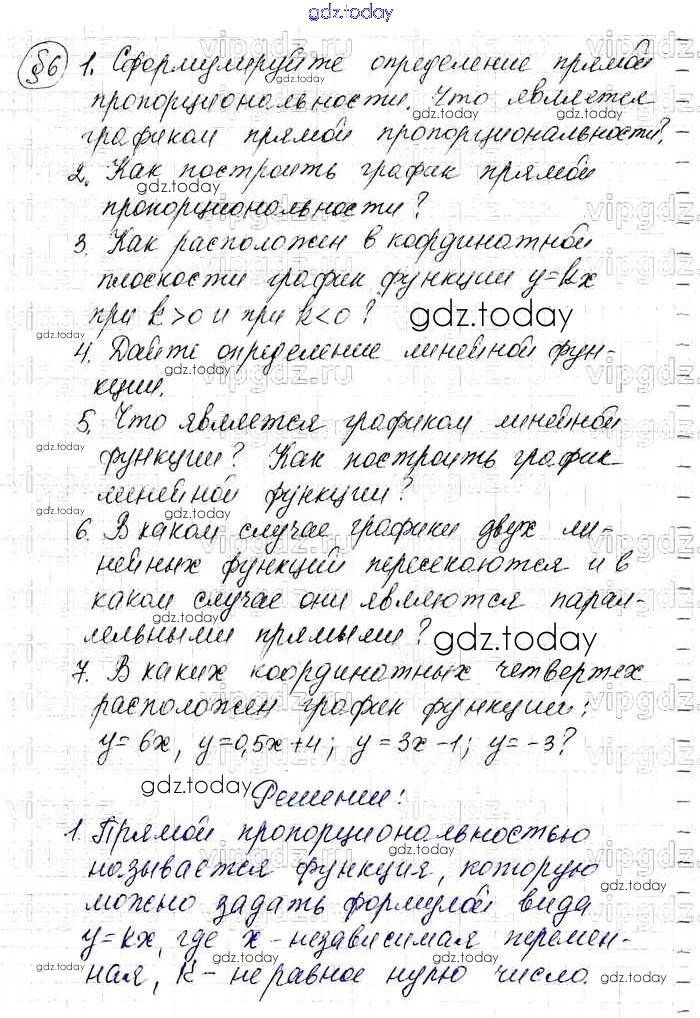 gdz.today
§6 1. Сформулируйте определение прямой
пропорциональности. Что является
графиком прямой пропорциональности?
2. Как построить график прямой
пропорциональности?
3. Как расположен в координатной
плоскости график функции y=kx
при k>0 и при k<0?
4. Дайте определение линейной функ-
ции.
5. Что является графиком линейной
функции? Как построить график
линейной функции?
6. В каком случае графики двух ли-
нейных функций пересекаются и в
каком случае они являются парал-
лельными прямыми?
7. В каких координатных четвертях
расположен график функции:
y=6x, y=0,5x+4; y=3x-1; y=-3?
Решение:
1. Прямой пропорциональностью
называется функция, которую
можно задать формулой вида
y=kx, где x - независимая перемен-
ная, k - не равное нулю число.